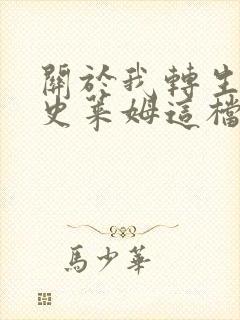 關於我轉生
史萊姆這檔
馬少華